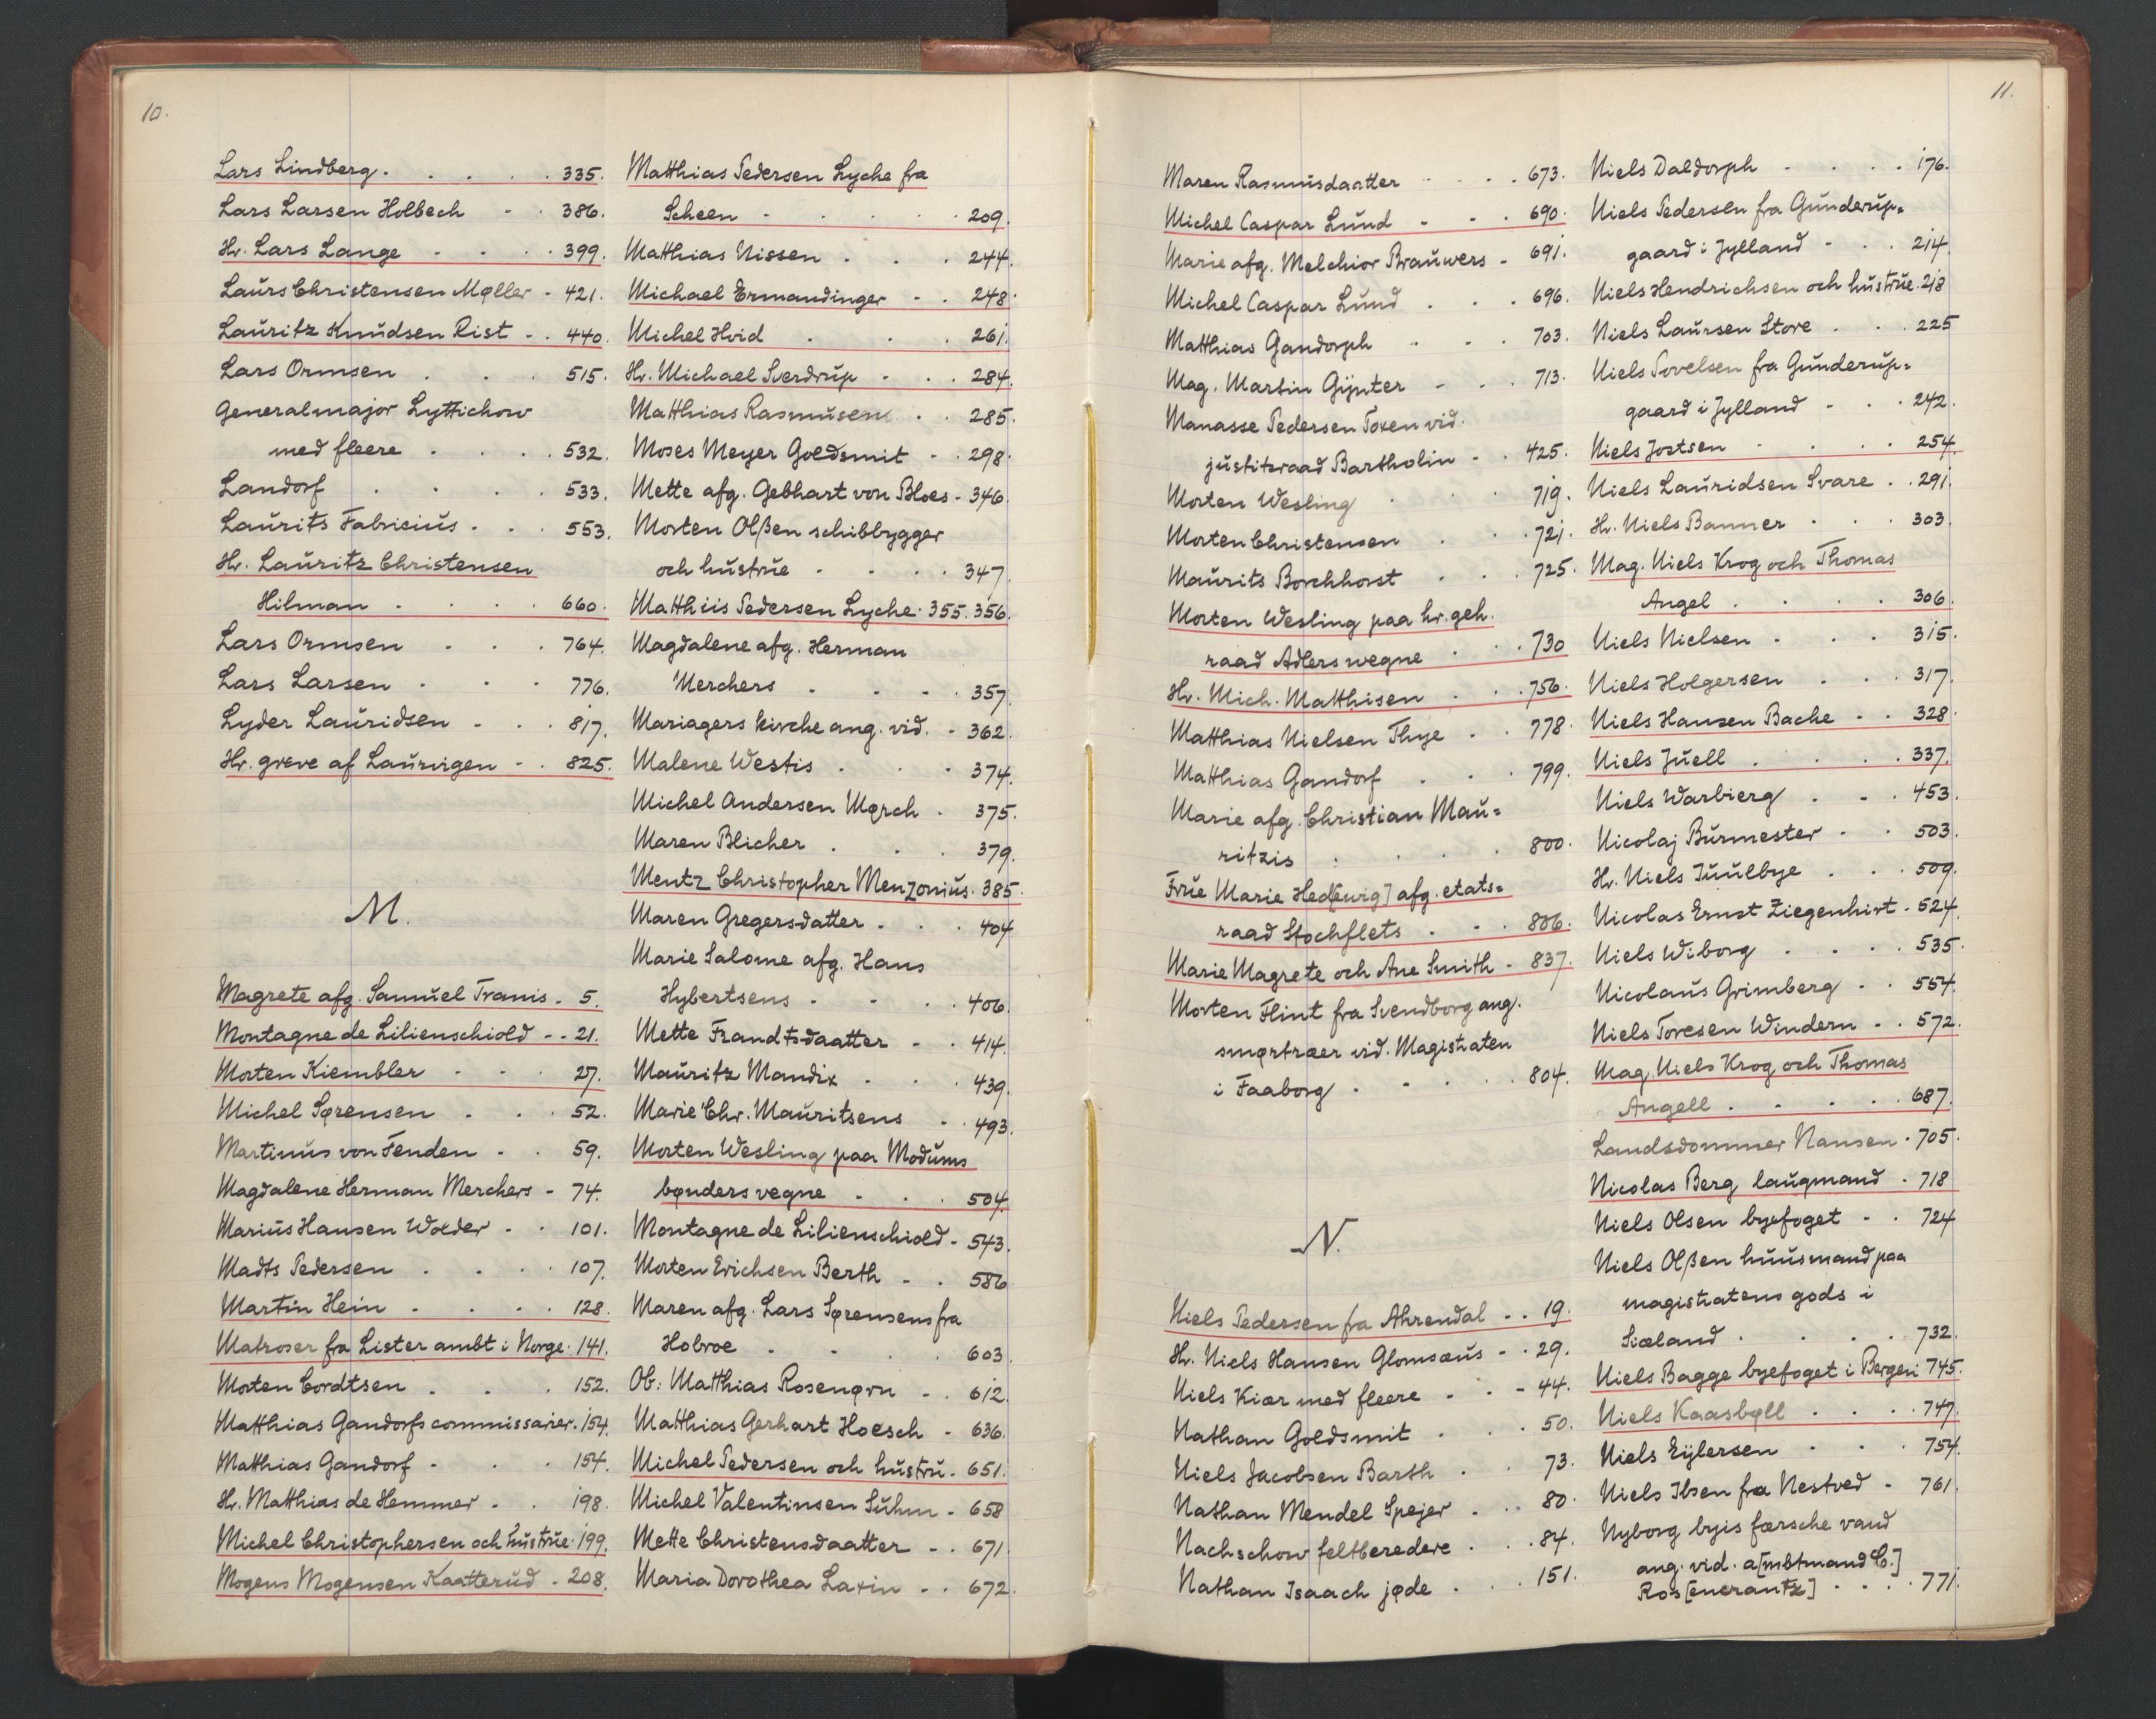 10.
Lars Lindberg. . . . . . 335.
Lars Larsen Holbech - . 386.
Hr. Lars Lange - . . . 399.
Laurs Christensen Møller - 421.
Lauritz Knudsen Rist - . 440.
Lars Ormsen . . . 515.
Generalmajor Lyttichow
med fleere . . . . 532.
Landorf . . . . 533.
Laurits Fabricius . . . 553.
Hr. Lauritz Christensen
Hilman . . . . 660.
Lars Ormsen . . . 764.
Lars Larsen . . . 776.
Lyder Lauridsen - . . 817.
Hr. greve af Laurvigen - . 825.
M.
Magrete afg. Samuel Tranis - 5.
Montagne de Lilienschiold - - 21.
Morten Kiembler - . . 27.
Michel Sørensen . . . 52.
Martinus von Fenden - . 59.
Magdalene Herman Merchers - 74.
Marius Hansen Wolder - . 101.
Madts Pedersen . . . . 107.
Martin Hein . . . . 128.
Matroser fra Lister ambt i Norge. 141.
Morten Cordtsen . . . 152.
Matthias Gandorfs commissairer. 154.
Matthias Gandorf - . . 154.
Hr. Matthias de Hemmer - . 198.
Michel Christophersen och hustrue. 199.
Mogens Mogensen Kaatterud - 208.
Matthias Pedersen Lyche fra
Scheen - . . . . 209.
Matthias Nissen . . . 244.
Michael Ermandinger - . 248.
Michel Hvid . . . 261.
Hr. Michael Sverdrup - . . 284.
Matthias Rasmusen . . 285.
Moses Meyer Goldsmit - . 298.
Mette afg. Gebhart von Bloes - 346.
Morten Olßen schibbygger
och hustrue - . . . 347.
Matthiis Pedersen Lyche. 355. 356.
Magdalene afg. Herman
Merchers . . . . 357.
Mariagers kirche ang. vid. - 362.
Malene Westis . . . 374.
Michel Andersen Mørch . 375.
Maren Blicher . . . 379.
Mentz Christopher Menzonius. 385.
Maren Gregersdatter . . . 404
Marie Salome afg. Hans
Hybertsens - . . . 406.
Mette Frandtsdaatter - . 414.
Mauritz Mandix . . . 439.
Marie Chr. Mauritsens . . 493.
Morten Wesling paa Modums
bønders vegne - . . 504.
Montagne de Lilienschiold - 543.
Morten Erichsen Berth - . 586
Maren afg. Lars Sørensens fra
Hobroe - . . . . 603.
Ob: Matthias Rosenørn - . 612.
Matthias Gerhart Hoesch - 636.
Michel Pedersen och hustru - 651.
Michel Valentinsen Suhm - 658
Mette Christensdaatter - . 671.
Maria Dorothea Laxin - . 672.
11.
Maren Rasmusdaatter . . . . 673.
Michel Caspar Lund - - . 690.
Marie afg. Melchior Brauwers - 691.
Michel Caspar Lund . . . 696.
Matthias Gandorph . - . 703.
Mag. Martin Gÿnter - . . 713.
Manasse Pedersen Toxen vid.
justitsraad Bartholin - . 425.
Morten Wesling . . . 719.
Morten Christensen . . . 721.
Maurits Borchhorst . . . 725.
Morten Wesling paa hr. geh.
raad Adlers vegne . . . 730
Hr. Mich. Matthisen . . . 756.
Matthias Nielsen Thye . . 778.
Matthias Gandorf . . . 799.
Marie afg. Christian Mau=
ritzis . . . . . 800.
Frue Marie Hed[ewig] afg. etats=
raad Stochflets . . . 806.
Marie Magrete och Ane Smith - 837.
Morten Flint fra Svendborg ang.
smørtræer vid. Magistraten
i Faaborg . - . . . 804.
N.
Niels Pedersen fra Ahrendal . . 19.
Hr. Niels Hansen Glomsæus - . 29.
Niels Kiær med fleere . . - 44.
Nathan Goldsmit . . . 50.
Niels Jacobsen Barth . . 73.
Nathan Mendel Spejer . . . 80.
Nachschow feltberedere . . . 84.
Nathan Isaach jøde . . . 151.
Niels Daldorph - . . . 176.
Niels Pedersen fra Gunderup=
gaard i Jylland - . . 214.
Niels Hendrichsen och hustrue. 218
Niels Laursen Store . . . 225
Niels Povelsen fra Gunderup=
gaard i Jylland - . . 242.
Niels Jostsen . . . . 254.
Niels Lauridsen Svare . . 291.
Hr. Niels Banner . . . 303.
Mag. Niels Krog och Thomas
Angel . . . . . 306.
Niels Nielsen - . . . 315.
Niels Holgersen . . . 317.
Niels Hansen Bache - . 328.
Niels Juell . . . . 337.
Niels Warbierg . - . 453.
Nicolaj Burmester - . 503.
Hr. Niels Juulbye . . . 509.
Nicolas Ernst Ziegenhirt - 524.
Niels Wiborg . . . . 535.
Nicolaus Grimberg - . 554.
Niels Toresen Windern - . 572.
Mag. Niels Krog och Thomas
Angell . . . . . 687.
Landsdommer Nansen . 705.
Nicolas Berg laugmand . 718
Niels Olsen byefoget - . 724
Niels Olßen huusmand paa
magistratens gods i
Siæland . . . . 732.
Niels Bagge byefoget i Bergen. 745.
Niels Kaasbøll . . . . 747.
Niels Eÿlersen . . . 754.
Niels Ibsen fra Nestved - 761.
Nyborg byis færsche vand
ang. vid. a[mbtmand C.]
Ros[encrantz] . . . . 771.